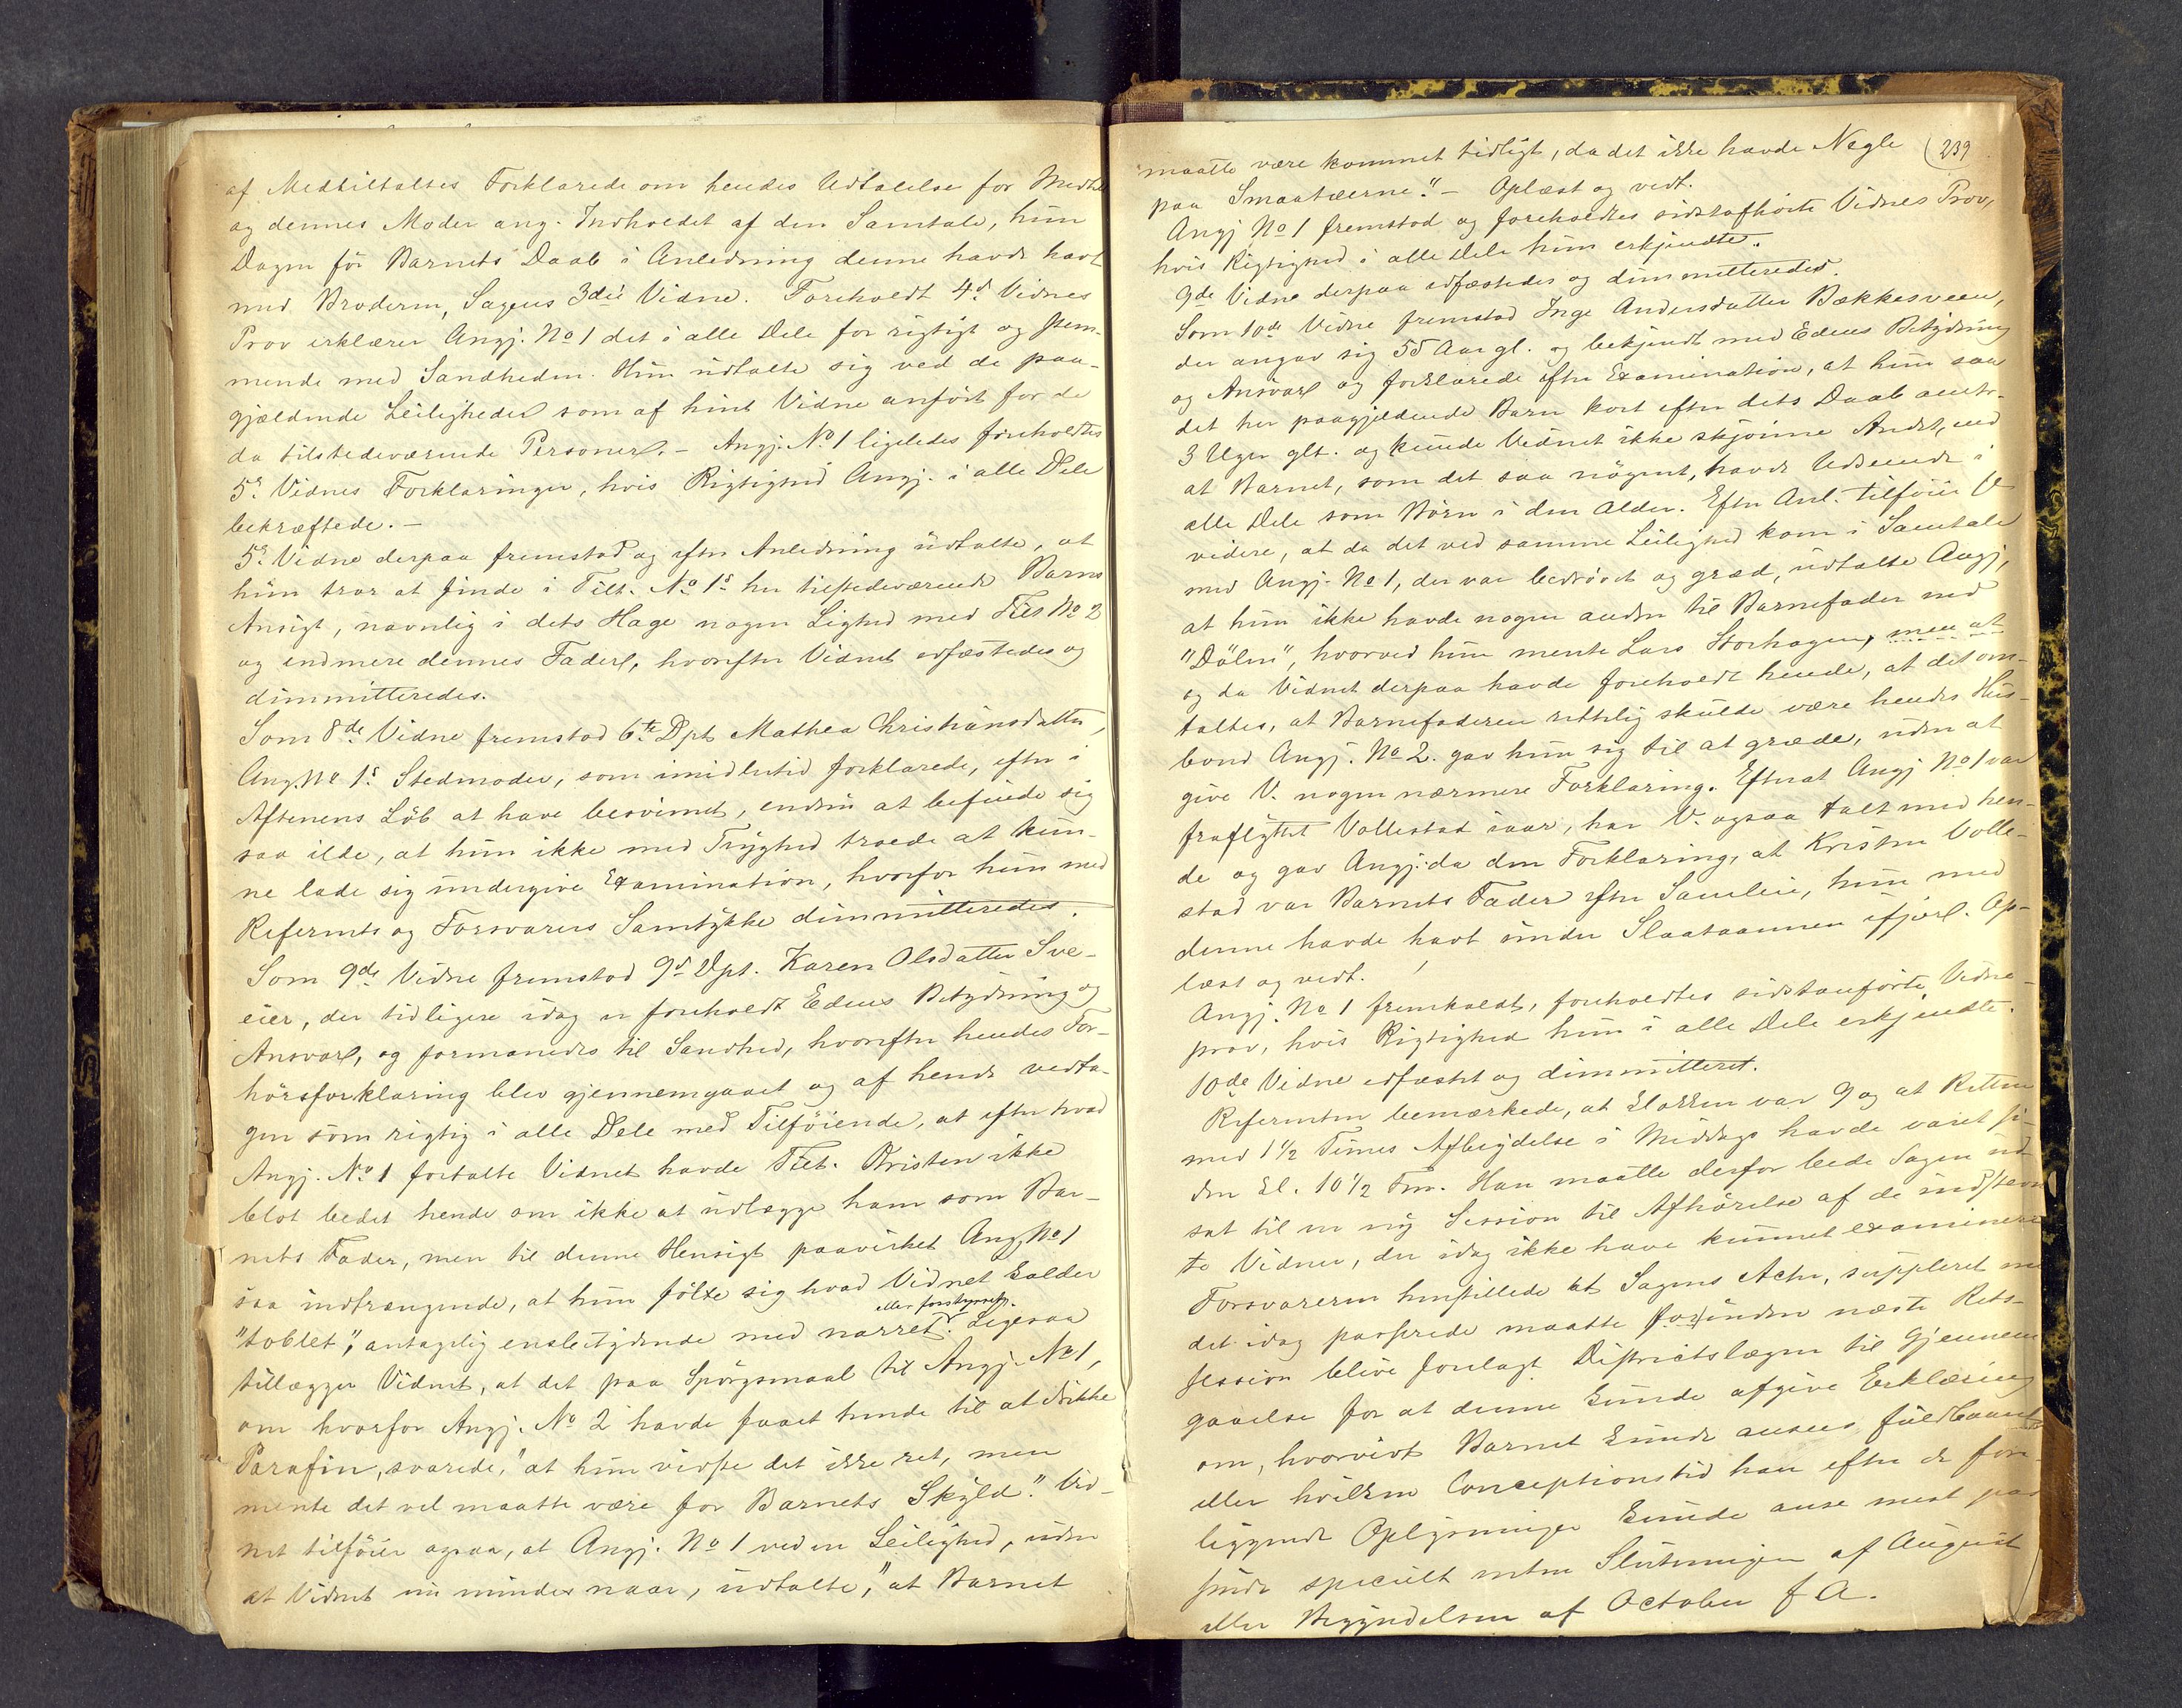 af Medtiltaltes Forklarede om hendes Udtalelse for Medt
og dennes Moder ang. Indholdet af den Samtale, hun
Dagen før Barnets Daab i Anledning denne havde havt
med Broderen, Sagens 3die Vidne. Foreholdt 4d. Vidnes
Prov erklærer Angj. No 1 det i alle Dele for rigtigt og stem-
mende med Sandheden. Hun udtalte sig ved de paa-
gjældende Leiligheder som af hint Vidne anført for de
da tilstedeværende Personer. - Angj. No 1 ligeledes foreholdtes
5s Vidnes Forklaringer, hvis Rigtighed Angj. i alle Dele
bekræftede. -
5s Vidne derpaa fremstod og efter Anledning udtalte, at
hun tror at finde i Tilt. No 1s her tilstedeværende Barns
Ansigt, navnlig i dets Hage nogen Lighed med Tilt No 2
og endmere dennes Fader, hvorefter Vidnet edfæstedes og
dimmitteredes.
Som 8de Vidne fremstod 6te Dpt Mathea Christiansdatter,
Ang. No 1s Stedmoder, som imidlertid forklarede, efter i
Aftenens Løb at have besvimet, endnu at befinde sig
saa ilde, at hun ikke med Tryghed troede at kun-
ne lade sig undergive Examination, hvorfor hun med
Referents og Forsvarers Samtykke dimmitteredes.
Som 9de Vidne fremstod 9d Dpt. Karen Olsdatter Sve-
eier, der tidligere idag er foreholdt Edens Betydning og
Ansvar, og formanedes til Sandhed, hvorefter hendes For-
hørsforklaring blev gjennemgaaet og af hende vedta-
gen som rigtig i alle Dele med Tilføiende, at efter hvad
Angj. No 1 fortalte Vidnet havde Tilt. Kristen ikke
blot bedet hende om ikke at udlægge ham som Bar-
nets Fader, men til denne Hensigt paavirket Ang No 1
saa indtrængende, at hun følte sig hvad Vidnet kalder
"toblet", antagelig enslebetydende med narret eller forstyrret. Ligesaa
tillægger Vidnet, at det paa Spørgsmaal til Angj. No 1,
om hvorfor Angj. No 2 havde faaet hende til at drikke
Parafin, svarede, "at hun vidste det ikke ret, men
mente det vel maatte være for Barnets Skyld." Vid-
net tilføier ogsaa, at Angj. No 1 ved en Leilighed, uden
at Vidnet nu mindes naar, udtalte, "at Barnet
239
maatte være kommet tidligt, da det ikke havde Negle
paa Smaatæerne." - Oplæst og vedt.
Angj No 1 fremstod og foreholdtes sidstafhørte Vidnes Prov,
hvis Rigtighed i alle Dele hun erkjendte.
9de Vidne derpaa edfæstedes og dimmitteredes.
Som 10de Vidne fremstod Inge Andersdatter Bækkesveen,
der angav sig 55 Aar gl. og bekjendt med Edens Betydning
og Ansvar og forklarede efter Examination, at hun saa
det her paagjeldende Barn kort efter dets Daab omtr.
3 Uger glt. og kunde Vidnet ikke skjønne Andet, end
at Barnet, som det saa nøgent, havde Udseende i
alle Dele som Børn i den Alder. Efter Anl. tilføier V
videre, at da det ved samme Leilighed kom i Samtale
med Angj. No 1, der var bedrøvet og græd, udtalte Angj,
at hun ikke havde nogen anden til Barnefader end
"Dølen", hvorved hun mente Lars Storhagen, men at
og da Vidnet derpaa havde foreholdt hende, at det om-
taltes, at Barnefaderen rettelig skulde være hendes Hus-
bond Angj. No 2. gav hun sig til at græde, uden at
give V. nogen nærmere Forklaring. Efterat Angj No 1 var
fraflyttet Vollestad iaar, har V. ogsaa talt med hen-
de og gav Angj. da den Forklaring, at Kristen Volle-
stad var Barnets Fader efter Samleie, hun med
denne havde havt under Slaataannen ifjor. Op-
læst og vedt.
Angj. No 1 fremkaldt, foreholdtes sidstanførte Vidne-
prov, hvis Rigtighed hun i alle Dele erkjendte.
10de Vidne edfæstet og dimmitteret.
Referenten bemærkede, at Klokken var 9 og at Retten
med 1 1/2 Times Afbrydelse i Middags havde varet si-
den Kl. 10 1/2 Fm. Han maatte derfor bede Sagen ud-
sat til en ny Session til Afhørelse af de indstevn
te Vidner, der idag ikke have kunnet examineres
Forsvareren henstillede at Sagens Acter, suppleret me
det idag passerede maatte forinden næste Rets-
session blive forelagt Districtslægen til Gjennem
gaaelse for at denne kunde afgive Erklæring
om, hvorvidt Barnet kunde ansees fuldbaaret
eller hvilken Conceptionstid han efter de fore-
liggende Oplysninger kunde anse mest pas
sende specielt enten Slutningen af August
eller Begyndelsen af October f A.